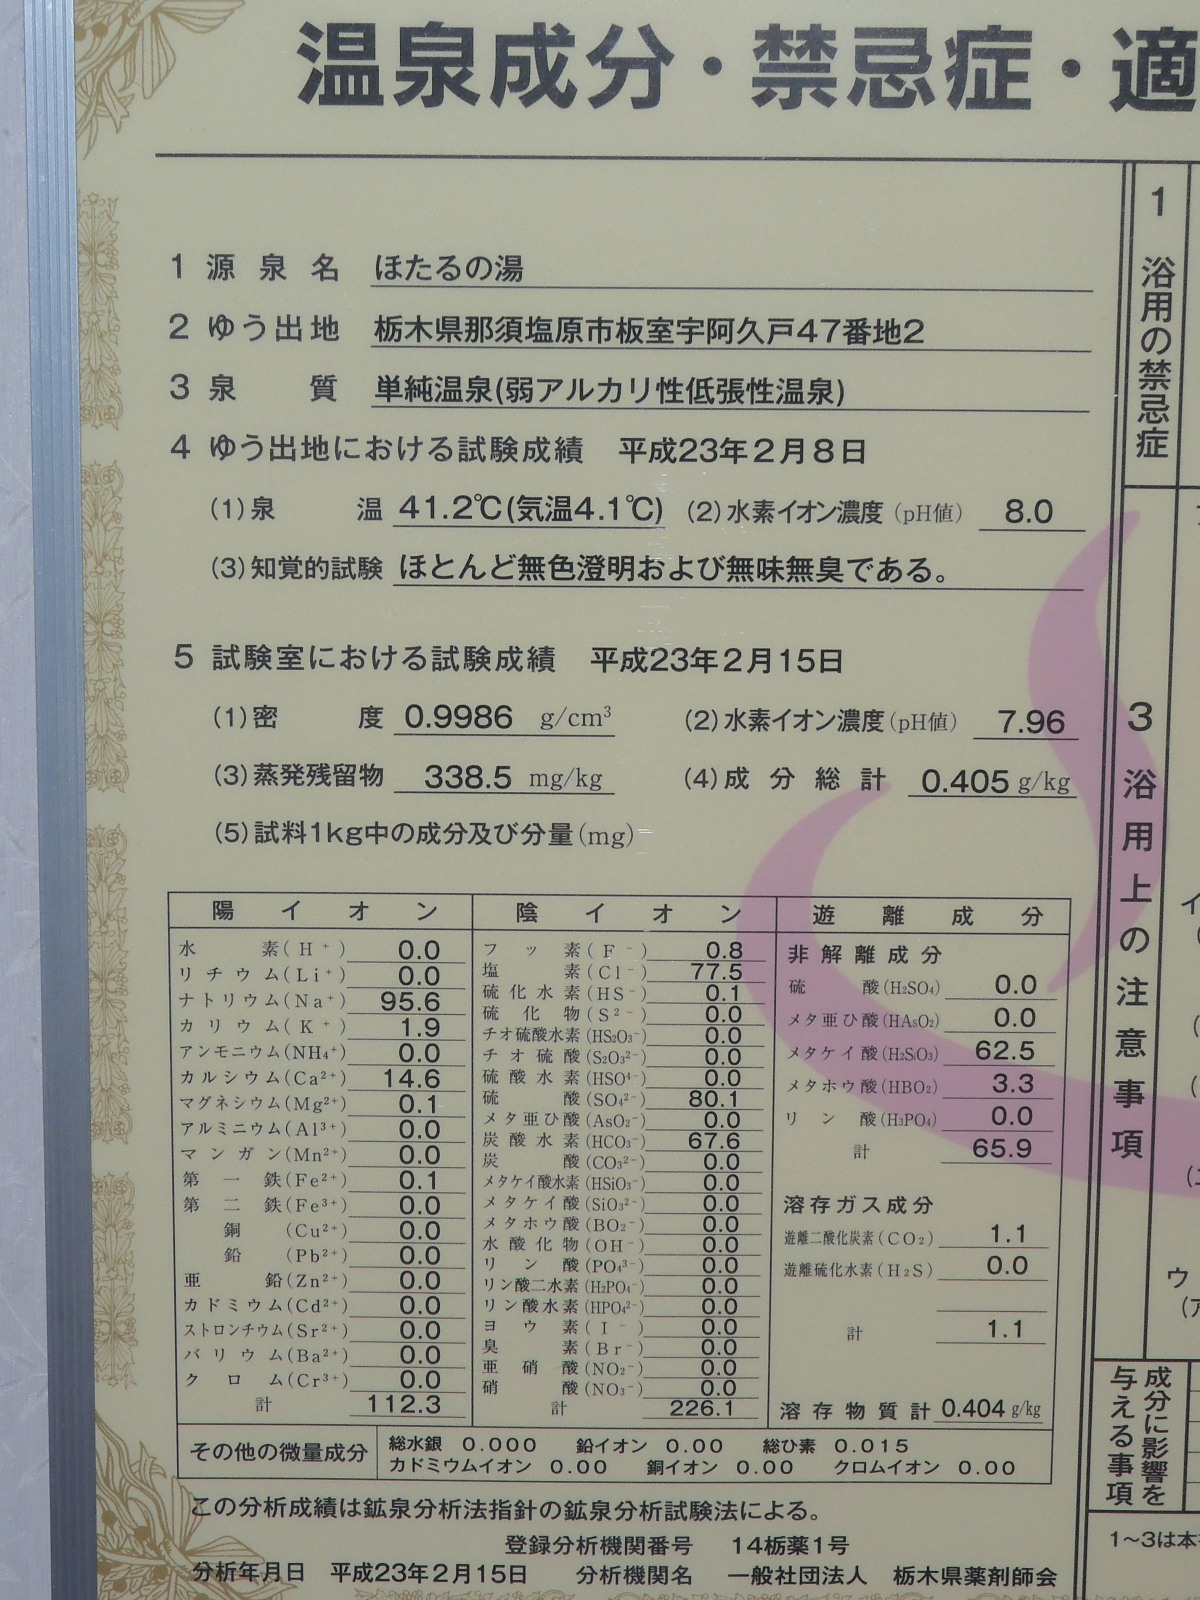 温泉成分・禁忌症・適
1 源泉名 ほたるの湯
2 ゆう出地 栃木県那須塩原市板室字阿久戸47番地2
3 泉質 単純温泉(弱アルカリ性低張性温泉)
4 ゆう出地における試験成績 平成23年2月8日
(1)泉温 41.2℃(気温4.1℃) (2)水素イオン濃度(pH値) 8.0
(3)知覚的試験 ほとんど無色澄明および無味無臭である。
5 試験室における試験成績 平成23年2月15日
(1)密度 0.9986 g/cm³ (2)水素イオン濃度(pH値) 7.96
(3)蒸発残留物 338.5 mg/kg (4)成分総計 0.405 g/kg
(5)試料1kg中の成分及び分量(mg)
陽イオン
水素(H⁺) 0.0
リチウム(Li⁺) 0.0
ナトリウム(Na⁺) 95.6
カリウム(K⁺) 1.9
アンモニウム(NH₄⁺) 0.0
カルシウム(Ca²⁺) 14.6
マグネシウム(Mg²⁺) 0.1
アルミニウム(Al³⁺) 0.0
マンガン(Mn²⁺) 0.0
第一鉄(Fe²⁺) 0.1
第二鉄(Fe³⁺) 0.0
銅(Cu²⁺) 0.0
鉛(Pb²⁺) 0.0
亜鉛(Zn²⁺) 0.0
カドミウム(Cd²⁺) 0.0
ストロンチウム(Sr²⁺) 0.0
バリウム(Ba²⁺) 0.0
クロム(Cr³⁺) 0.0
計 112.3
陰イオン
フッ素(F⁻) 0.8
塩素(Cl⁻) 77.5
硫化水素(HS⁻) 0.1
硫化物(S²⁻) 0.0
チオ硫酸水素(HS₂O₃⁻) 0.0
チオ硫酸(S₂O₃²⁻) 0.0
硫酸水素(HSO⁴⁻) 0.0
硫酸(SO₄²⁻) 80.1
メタ亜ひ酸(AsO₂⁻) 0.0
炭酸水素(HCO₃⁻) 67.6
炭酸(CO₃²⁻) 0.0
メタケイ酸水素(HSiO₃⁻) 0.0
メタケイ酸(SiO₃²⁻) 0.0
メタホウ酸(BO₂⁻) 0.0
水酸化物(OH⁻) 0.0
リン酸(PO₄³⁻) 0.0
リン酸二水素(H₂PO₄⁻) 0.0
リン酸水素(HPO₄²⁻) 0.0
ヨウ素(I⁻) 0.0
臭素(Br⁻) 0.0
亜硝酸(NO₂⁻) 0.0
硝酸(NO₃⁻) 0.0
計 226.1
遊離成分
非解離成分
硫酸(H₂SO₄) 0.0
メタ亜ひ酸(HAsO₂) 0.0
メタケイ酸(H₂SiO₃) 62.5
メタホウ酸(HBO₂) 3.3
リン酸(H₃PO₄) 0.0
計 65.9
溶存ガス成分
遊離二酸化炭素(CO₂) 1.1
遊離硫化水素(H₂S) 0.0
計 1.1
溶存物質計 0.404 g/kg
その他の微量成分
総水銀 0.000 鉛イオン 0.00 総ひ素 0.015
カドミウムイオン 0.00 銅イオン 0.00 クロムイオン 0.00
この分析成績は鉱泉分析法指針の鉱泉分析試験法による。
登録分析機関番号 14栃薬1号
分析年月日 平成23年2月15日 分析機関名 一般社団法人 栃木県薬剤師会
1 浴用の禁忌症
3 浴用上の注意事項
イ
ウ
(ア
成分に影響を
与える事項
1～3は本